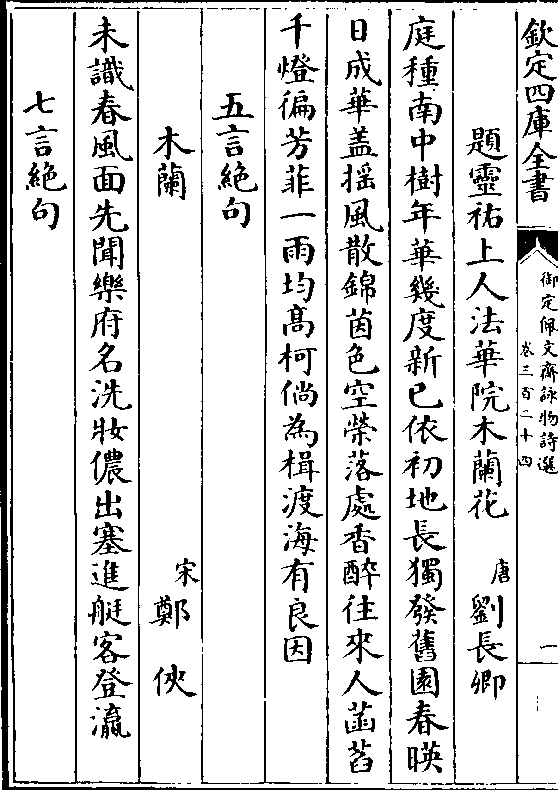 欽定四庫全書
御定佩文齋詠物詩選
卷三百二十四
一
題靈祐上人法華院木蘭花 唐 劉長卿
庭種南中樹年華幾度新已依初地長獨發舊園春暎
日成華盖揺風散錦茵色空榮落處香醉往來人菡萏
千燈徧芳菲一雨均高柯倘為楫渡海有良因
五言絶句
木蘭 宋 鄭俠
未識春風面先聞樂府名洗妝儂出塞進艇客登瀛
七言絶句